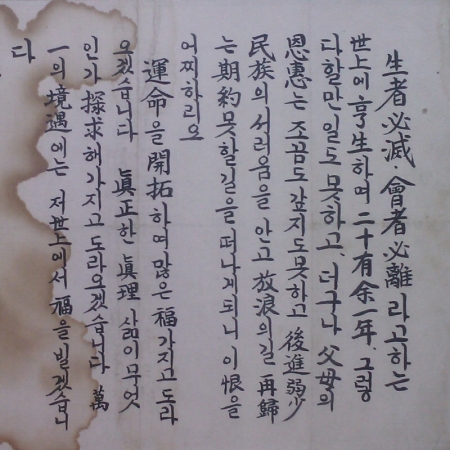 生者必滅、會者必離 라고하는
世上에 享生하며 二十有余一年、그렁
다할만일도 못하고、더구나 父母의
恩惠는 조꼼도 갚지도못하고 後進弱少
民族의 서러움을 안고 放浪의길 再歸
는 期約못할길을 떠나게되니 이 恨을
어찌하리오
運命을 開拓하여 많은 福가지고 도라
오겠습니다 眞正한 眞理 삶이무엇
인가 探求해가지고 도라오겠습니다 萬
一의 境遇에는 저世上에서 福을 빌겠습니
다.